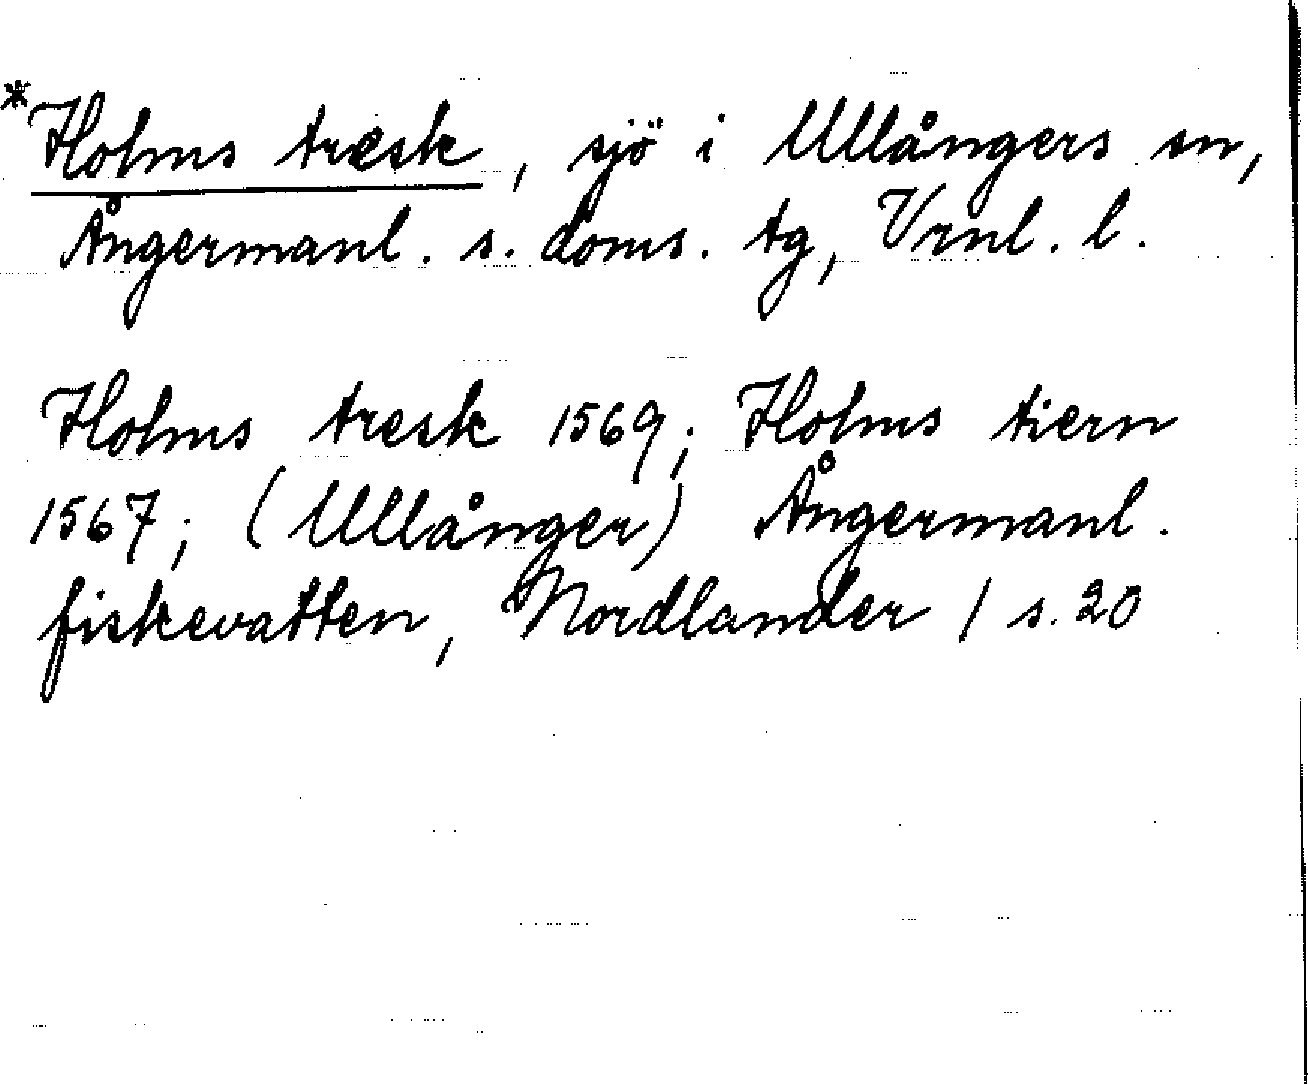 *Holms tresk, sjö i Ullångers sn,
Ångermanl. s. doms. tg, Vrnl. l.
Holms tresk 1569; Holms tiern
1567; (Ullånger) Ångermanl.
fiskevatten, Nordlander / s. 20